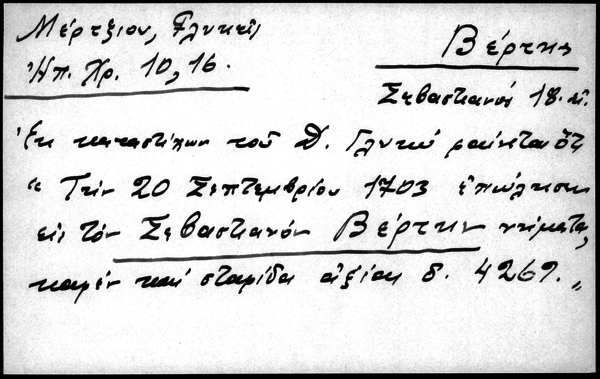 Μέρτζιου, Γλυκεῖς
Ἠπ. Χρ. 10, 16.
Βέρτης
Σεβαστιανός 18. αἰ.
Ἐκ καταστίχων τοῦ Δ. Γλυκύ φαίνεται ὅτι
"Τήν 20 Σεπτεμβρίου 1703 ἐπώλησεν
εἰς τόν Σεβαστιανόν Βέρτην νήματα,
καφέν καί σταφίδα ἀξίας δ. 4269."